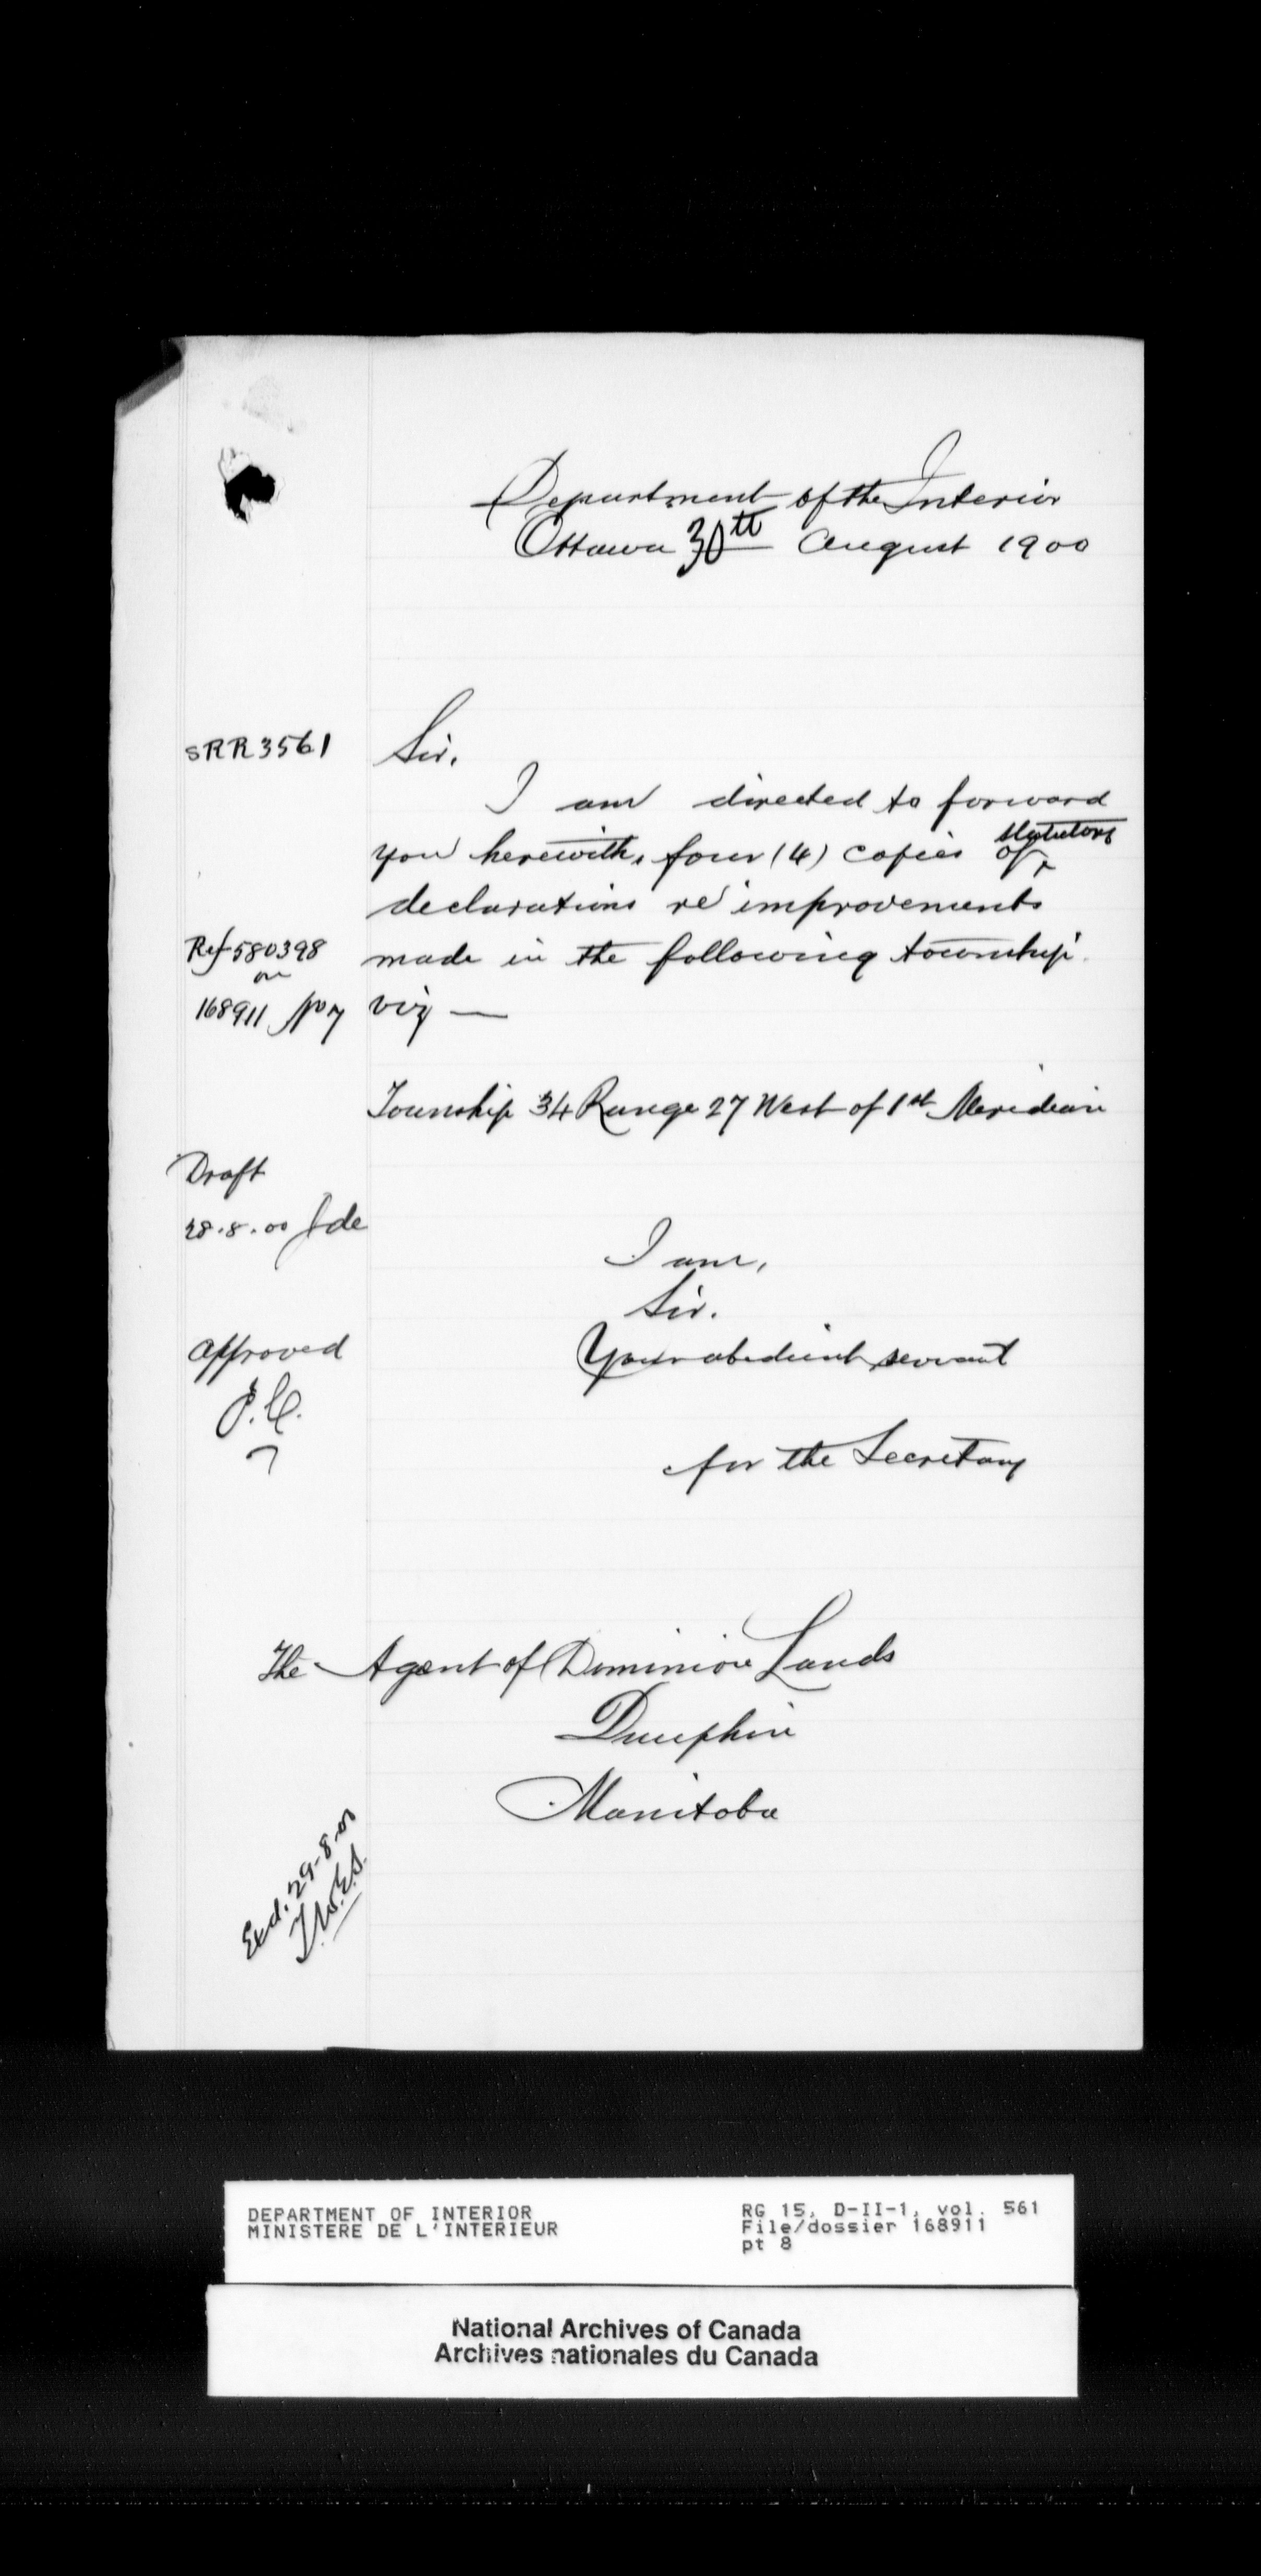 Department of the Interior
Ottawa 30th August 1900
SRR 3561
Sir,
I am directed to forward
you herewith, four (4) copies of statutory
declarations re improvements
Ref 580398
made in the following township.
on
168911 No 7
viz —
Township 34 Range 27 West of 1st Meridian
Draft
28.8.00 Jde
I am,
Sir.
Approved
Your obedient servant
P.G.
for the Secretary
The Agent of Dominion Lands
Dauphin
Manitoba
Exd. 29-8-00
DEPARTMENT OF INTERIOR
MINISTERE DE L'INTERIEUR
RG 15, D-II-1, vol. 561
File/dossier 168911
pt 8
National Archives of Canada
Archives nationales du Canada